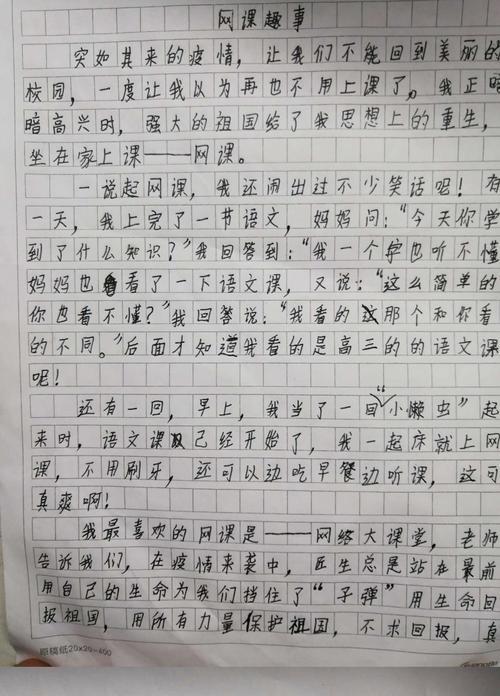 网课趣事
突如其来的疫情，让我们不能回到美丽的
校园，一度让我以为再也不用上课了。我正暗
暗高兴时，强大的祖国给了我思想上的重生，
坐在家上课——网课。
一说起网课，我还闹出过不少笑话呢！有
一天，我上完了一节语文，妈妈问：“今天你学
到了什么知识？”我回答到：“我一个字也听不懂
妈妈也看了一下语文课，又说：“这么简单的
你也看不懂？”我回答说：“我看的那个和你看
的不同。”后面才知道我看的是高三的的语文课
呢！
还有一回，早上，我当了一回“小懒虫”起
来时，语文课已经开始了，我一起床就上网
课，不用刷牙，还可以边吃早餐边听课，这可
真爽啊！
我最喜欢的网课是——网络大课堂，老师
告诉我们，在疫情来袭中，医生总是站在最前
用自己的生命为我们挡住了“子弹”用生命回
报祖国，用所有力量保护祖国，不求回报，真
原稿纸20×20=400